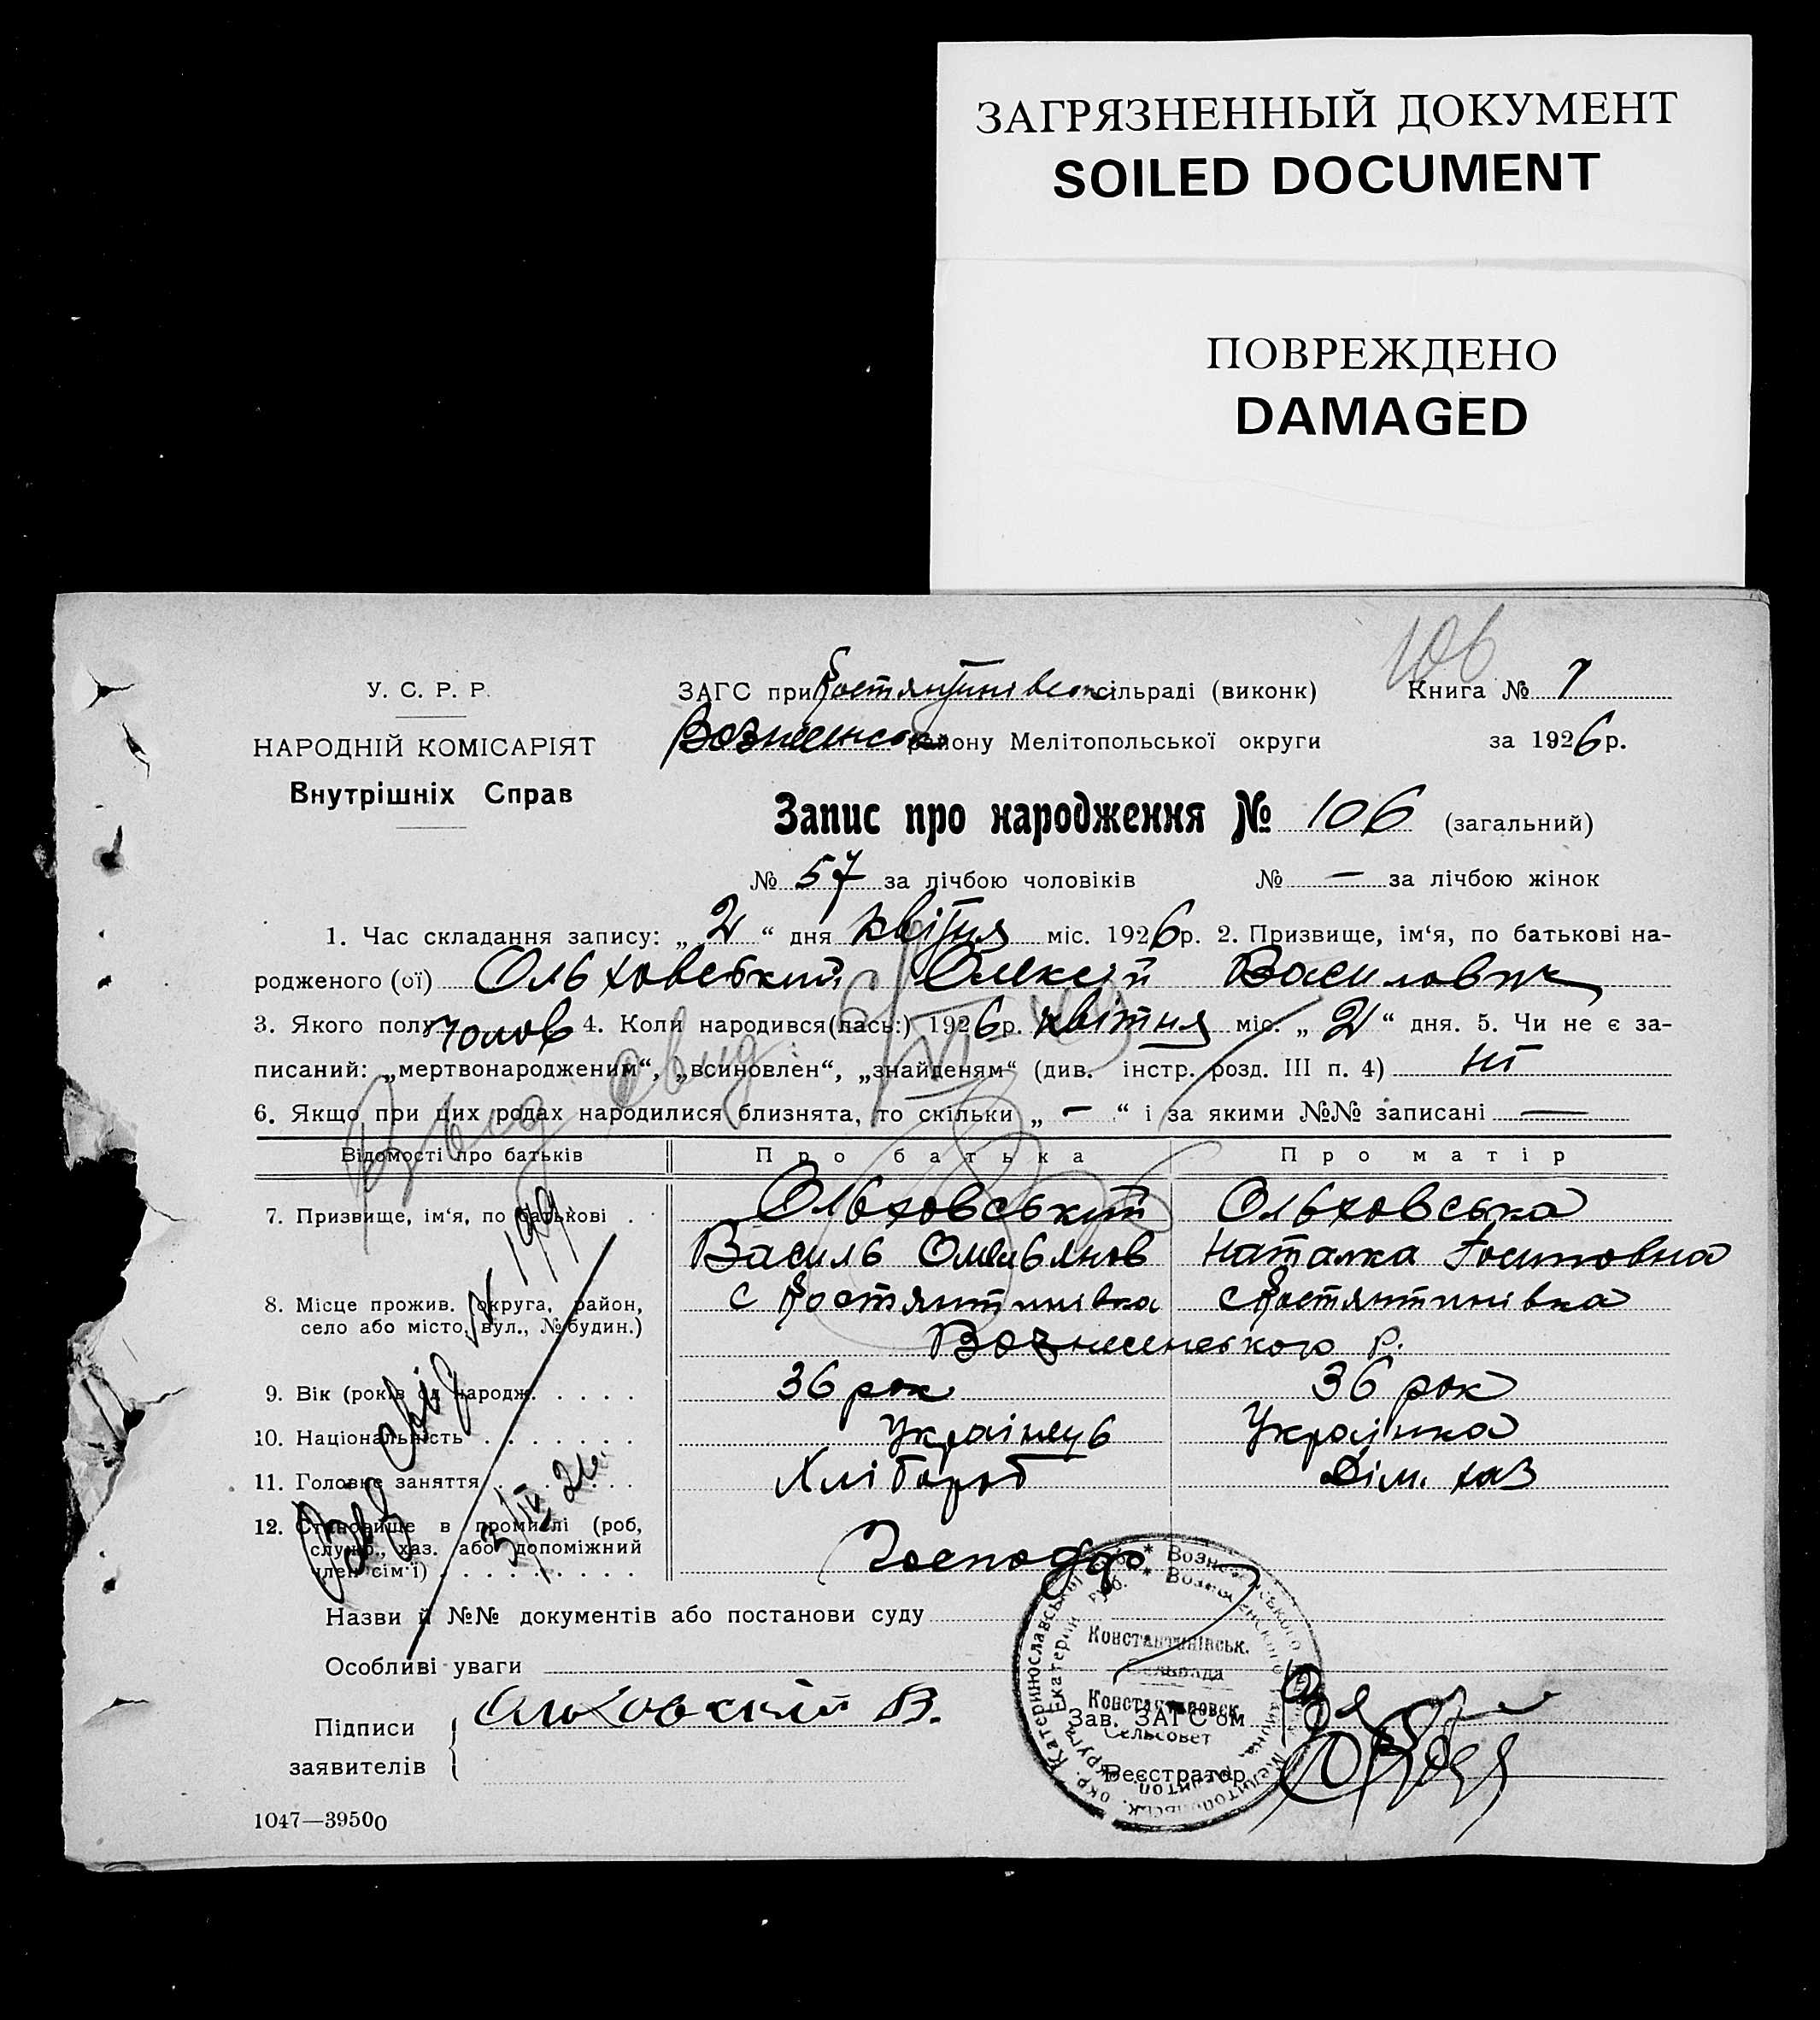 ЗАГРЯЗНЕННЫЙ ДОКУМЕНТ
SOILED DOCUMENT
ПОВРЕЖДЕНО
DAMAGED
106
У. С. Р. Р.
ЗАГС при Костянтинівськ сільраді (виконк) Книга № 1
НАРОДНІЙ КОМІСАРІЯТ
Вознесенськ району Мелітопольської округи за 1926 р.
Внутрішніх Справ
Запис про народження № 106 (загальний)
№ 57 за лічбою чоловіків № — за лічбою жінок
1. Час складання запису: „ 2 “ дня квітня міс. 1926 р. 2. Призвище, ім‘я, по батькові на-
родженого (ої) Ольховський Олексій Василович
3. Якого полу чолов 4. Коли народився(лась:) 1926 р. квітня міс. „ 2 “ дня. 5. Чи не є за-
писаний: „мертвонародженим“, „всиновлен“, „знайденям“ (див. інстр. розд. III п. 4) ні
6. Якщо при цих родах народилися близнята, то скільки „ — “ і за якими №№ записані —
Відомості про батьків Про батька Про матір
7. Призвище, ім‘я, по батькові . Ольховський Ольховська
Василь Омельянов Наталка Йосиповна
8. Місце прожив. (округа, район, с Костянтинівка с Костянтинівка
село або місто, вул., № будин.)
Вознесенського р.
9. Вік (років од народж. . . . . 36 рок 36 рок
10. Національність . . . . . . . Українець Українка
11. Головне заняття . . . . . . Хлібороб Дім. хаз
12. Становище в промислі (роб,
служб., хаз. або допоміжний
член сім‘ї) . . . . . . . . . Господар
Вид свід № 199
3/IV 26
Назви й №№ документів або постанови суду
Особливі уваги
Підписи
заявителів
Ольховский В.
Константинівськ.
Сельрада
Константиновск.
Сельсовет
Зав. ЗАГС‘ом
Реєстратор
1047—39500